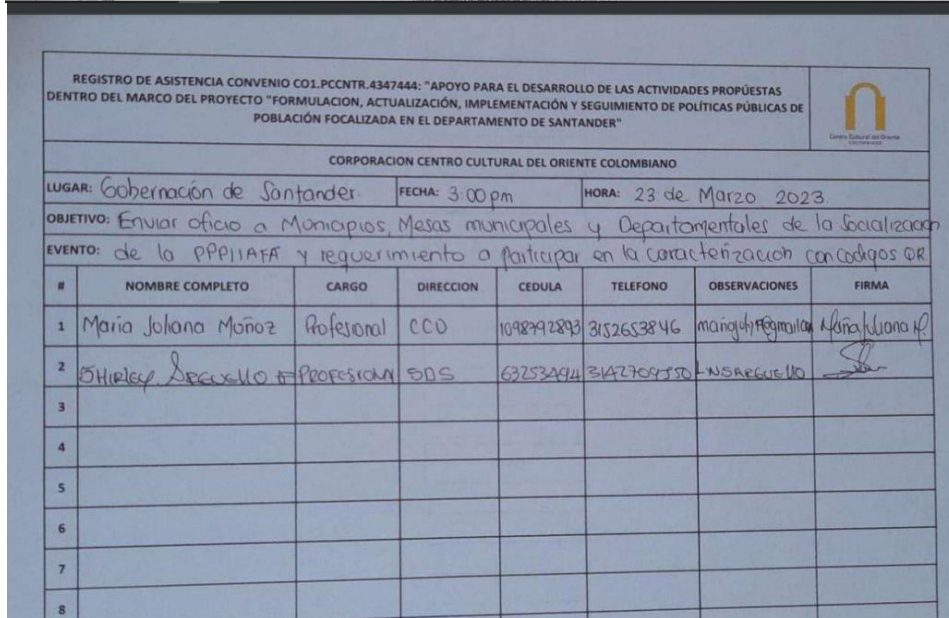 REGISTRO DE ASISTENCIA CONVENIO CO1.PCCNTR.4347444: "APOYO PARA EL DESARROLLO DE LAS ACTIVIDADES PROPÚESTAS
DENTRO DEL MARCO DEL PROYECTO "FORMULACION, ACTUALIZACIÓN, IMPLEMENTACIÓN Y SEGUIMIENTO DE POLÍTICAS PÚBLICAS DE
POBLACIÓN FOCALIZADA EN EL DEPARTAMENTO DE SANTANDER"
Centro Cultural del Oriente
COLOMBIANO
CORPORACION CENTRO CULTURAL DEL ORIENTE COLOMBIANO
LUGAR: Gobernación de Santander. FECHA: 3:00 pm HORA: 23 de Marzo 2023.
OBJETIVO: Enviar oficio a Municipios, Mesas municipales y Departamentales de la Socialización
EVENTO: de la PPPIIAFA y requerimiento a Participar en la Caracterización con Codigos QR
# NOMBRE COMPLETO CARGO DIRECCION CEDULA TELEFONO OBSERVACIONES FIRMA
1 Maria Johana Muñoz Profesional CCO 1098792893 3152653846
2 SHIRLEY PROFESIONAL SDS 63253494
3
4
5
6
7
8